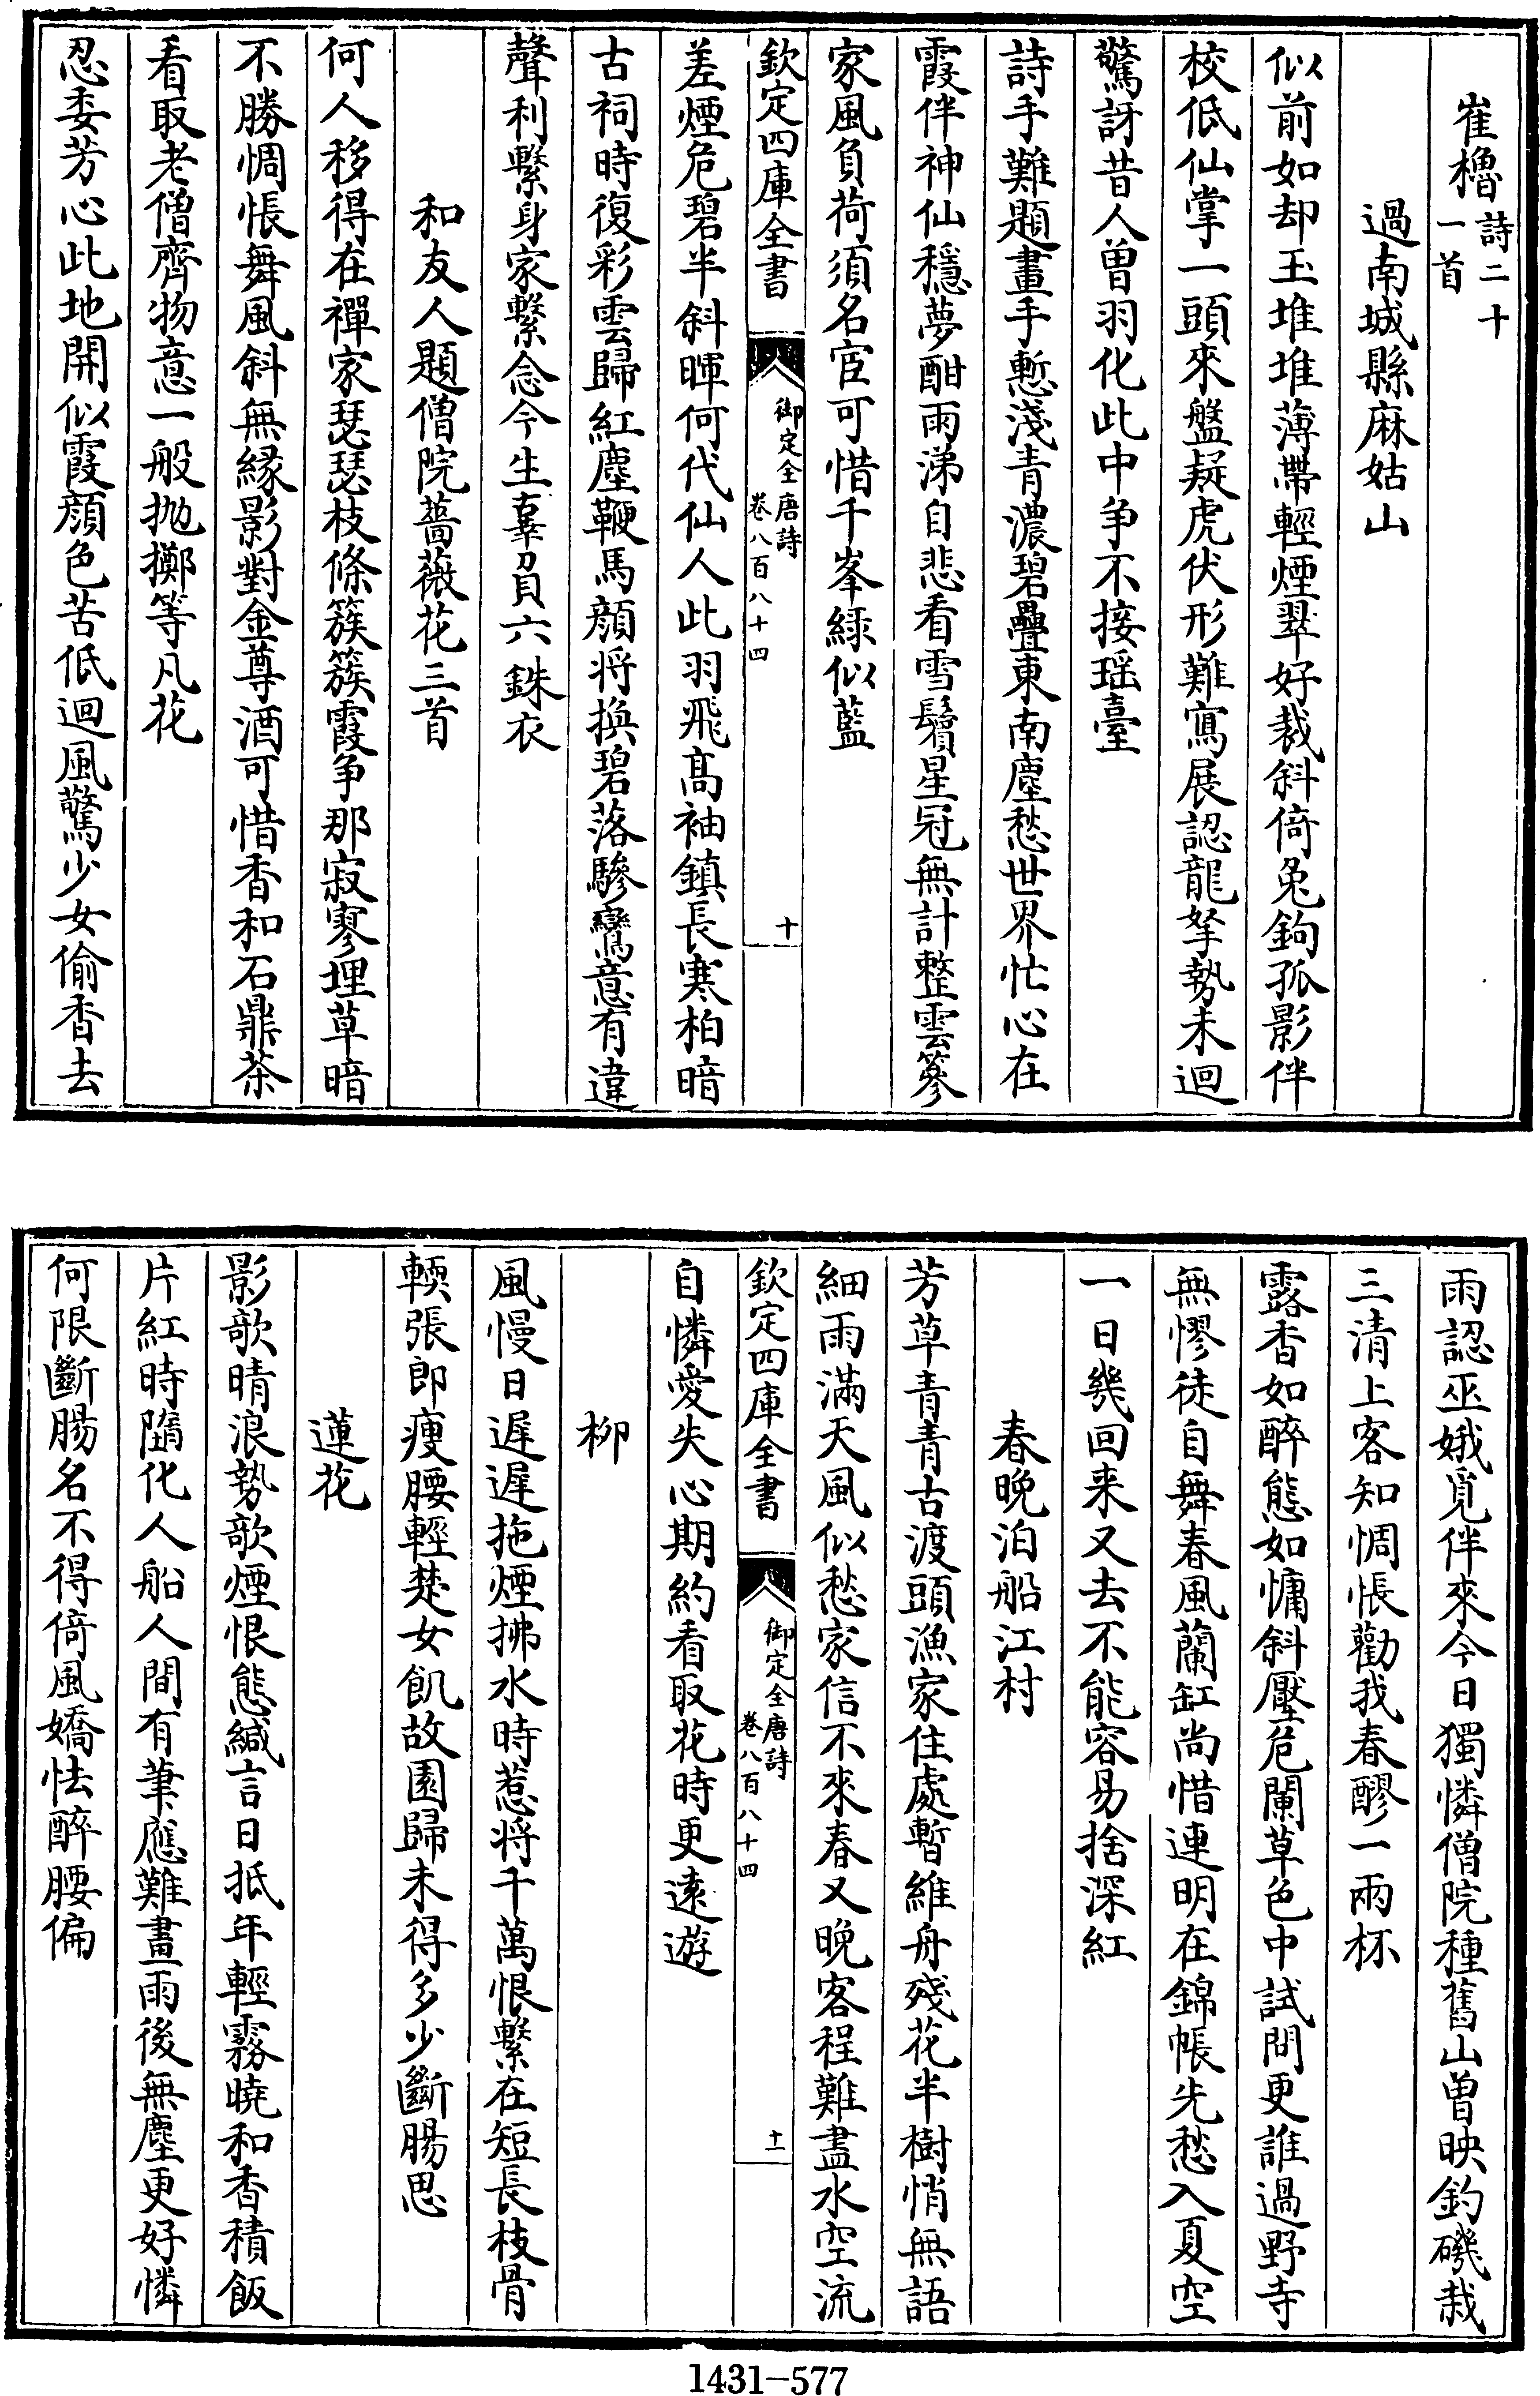 崔櫓詩二十一首
過南城縣麻姑山
似前如却玉堆堆薄帶輕煙翠好裁斜倚兔鉤孤影伴
校低仙掌一頭來盤疑虎伏形難寫展認龍拏勢未迴
驚訝昔人曾羽化此中争不接瑶臺
詩手難題畫手慙淺青濃碧疊東南塵愁世界忙心在
霞伴神仙穩夢酣雨涕自悲看雪鬢星冠無計整雲篸
家風負荷須名宦可惜千峯緑似藍
欽定四庫全書
御定全唐詩
卷八百八十四
十
差煙危碧半斜暉何代仙人此羽飛髙袖鎮長寒柏暗
古祠時復彩雲歸紅塵鞭馬顔将換碧落驂鸞意有違
聲利繫身家繫念今生辜負六銖衣
和友人題僧院薔薇花三首
何人移得在禪家瑟瑟枝條簇簇霞争那寂寥埋草暗
不勝惆悵舞風斜無緣影對金尊酒可惜香和石鼎茶
看取老僧齊物意一般抛擲等凡花
忍委芳心此地開似霞顔色苦低迴風驚少女偷香去
雨認巫娥覓伴來今日獨憐僧院種舊山曽映釣磯栽
三清上客知惆悵勸我春醪一兩杯
露香如醉態如慵斜壓危闌草色中試問更誰過野寺
無憀徒自舞春風蘭缸尚惜連明在錦帳先愁入夏空
一日幾回来又去不能容易捨深紅
春晚泊船江村
芳草青青古渡頭漁家住處暫維舟殘花半樹悄無語
細雨滿天風似愁家信不來春又晚客程難盡水空流
欽定四庫全書
御定全唐詩
卷八百八十四
十一
自憐愛失心期約看取花時更遠遊
柳
風慢日遲遲拖煙拂水時惹将千萬恨繫在短長枝骨
輭張郎瘦腰輕楚女飢故園歸未得多少斷腸思
蓮花
影欹晴浪勢欹煙恨態緘言日抵年輕霧曉和香積飯
片紅時隨化人船人間有筆應難畫雨後無塵更好憐
何限斷腸名不得倚風嬌怯醉腰偏
1431-577